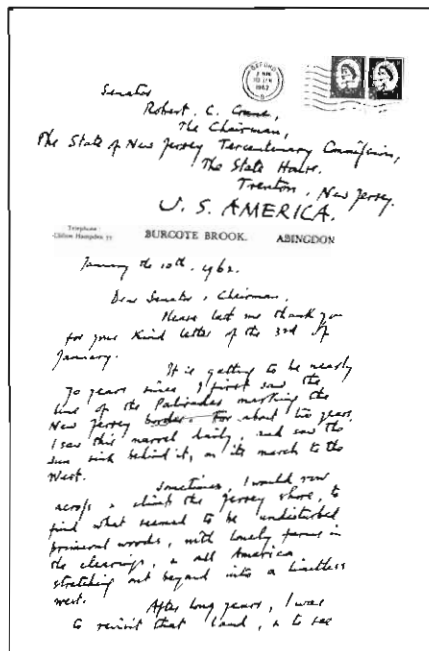 OXFORD
10 JAN
1962
Senator
Robert. C. Crane,
The Chairman,
The State of New Jersey Tercentenary Commission,
The State House.
Trenton, New Jersey.
U. S. AMERICA.
Telephone:
Clifton Hampden 77
BURCOTE BROOK. ABINGDON
January the 10th. 1962.
Dear Senator, Chairman.
Please let me thank you
for your kind letter of the 3rd of
January.
It is getting to be nearly
70 years since I first saw the
line of the Palisades marking the
New Jersey border. For about two years,
I saw this marvel daily, and saw the
sun sink behind it, on its march to the
West.
Sometimes, I would row
across & climb the Jersey shore, to
find what seemed to be undisturbed
primeval woods, with lonely farms in
the clearings, & all America
stretching out beyond into a limitless
west.
After long years, I was
to revisit that land, & to see